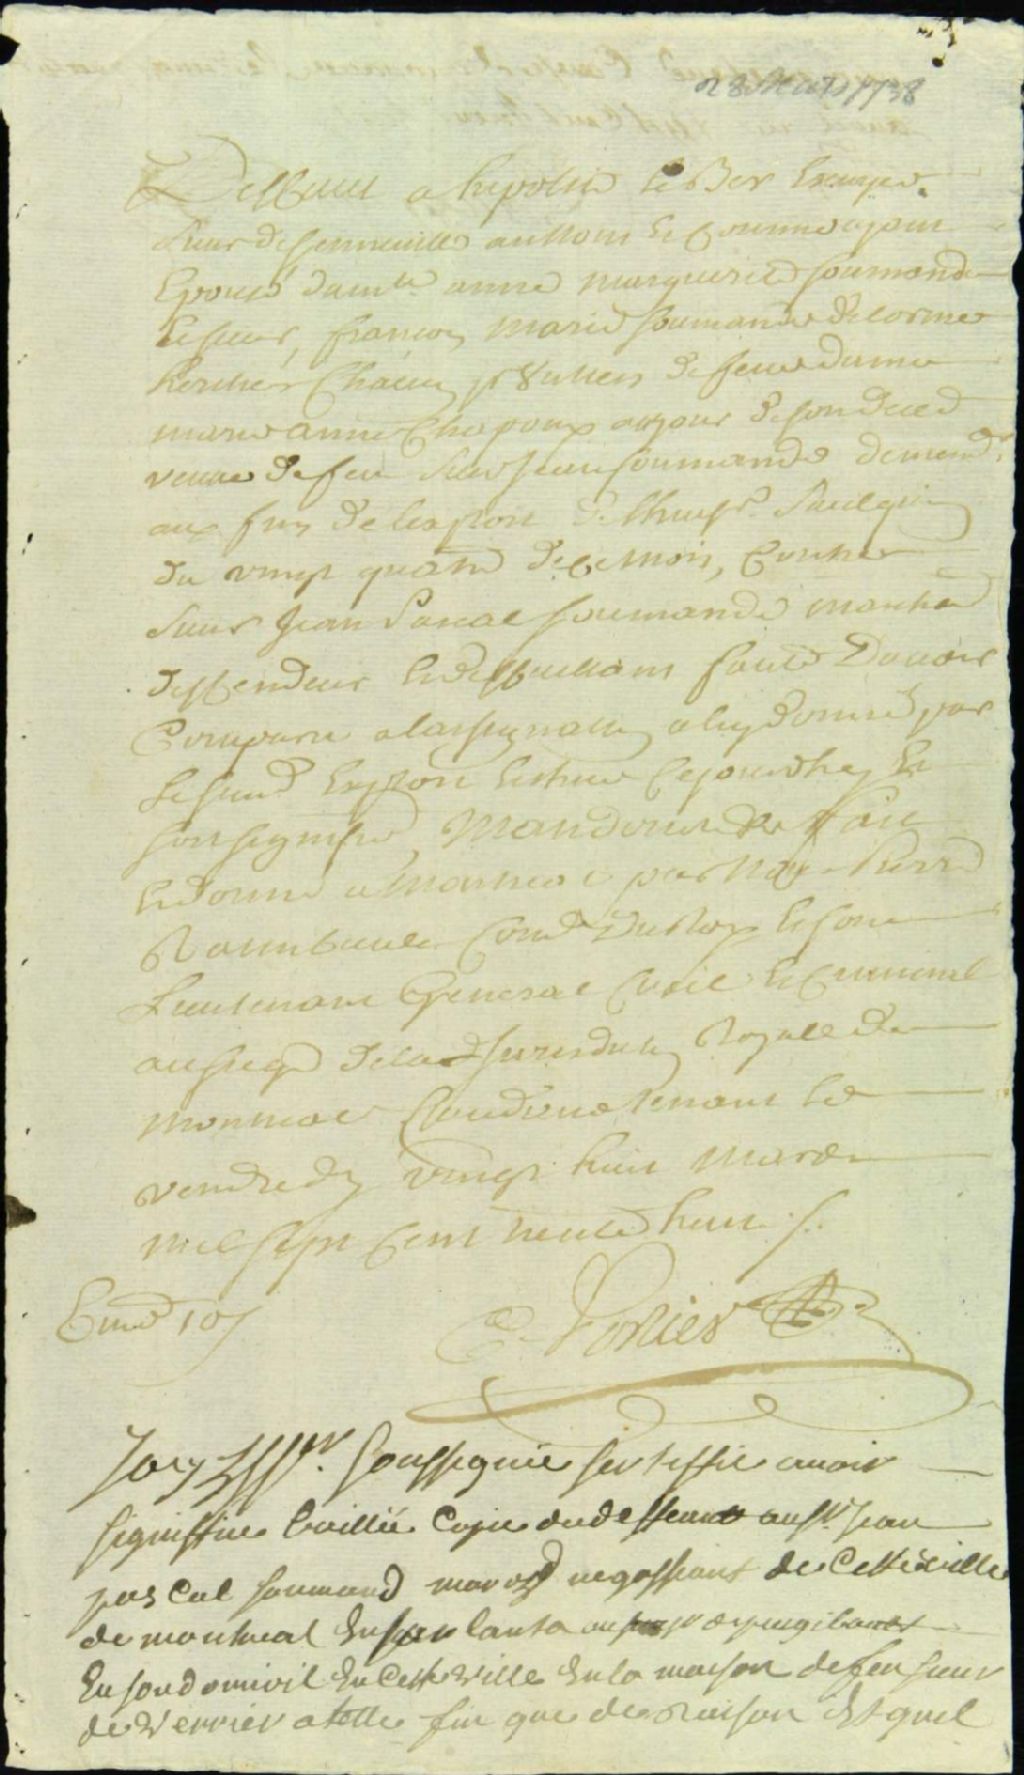 28 Mars 1738
Deffaut a hypolite Le Ber Ecuyer
Sieur de Senneville au nom et comme ayant
Epousé damlle anne marguerite soumande
Le sieur françois Marie soumande Delorme
heritiers Chacun de feue dame
marie anne Chapoux au jour de son deced
veuve de feu Sieur Jean soumande demand.
aux fins de lexploit de
du vingt quatre de ce Mois, Contre
Sieur Jean Pascal soumande marchand
deffendeur et deffaillant faute davoir
Comparu a lassignation a luy donné par
Le susd Exploit Echue Cejourdhuy Et
soit signifié, Mandons &a fait
et donné a Montreal par Nous Pierre
Raimbault Coner du Roy et son
Lieutenant General Civil et Criminel
au siege de la Jurisdiction Royalle de
Montreal laudience tenant Le
vendredy vingt huit Mars
mil sept Cent trente huit ·/.
C. Porlier
soussigné sertiffie avoir
signiffiee baillie Copie du deffeaut au Sr Jean
pascal soumand march negossiant de Cette ville
de montreal
En son domicil En Cette ville En la maison de feu sieur
de Verrier a telle fin que de Raison Et quil